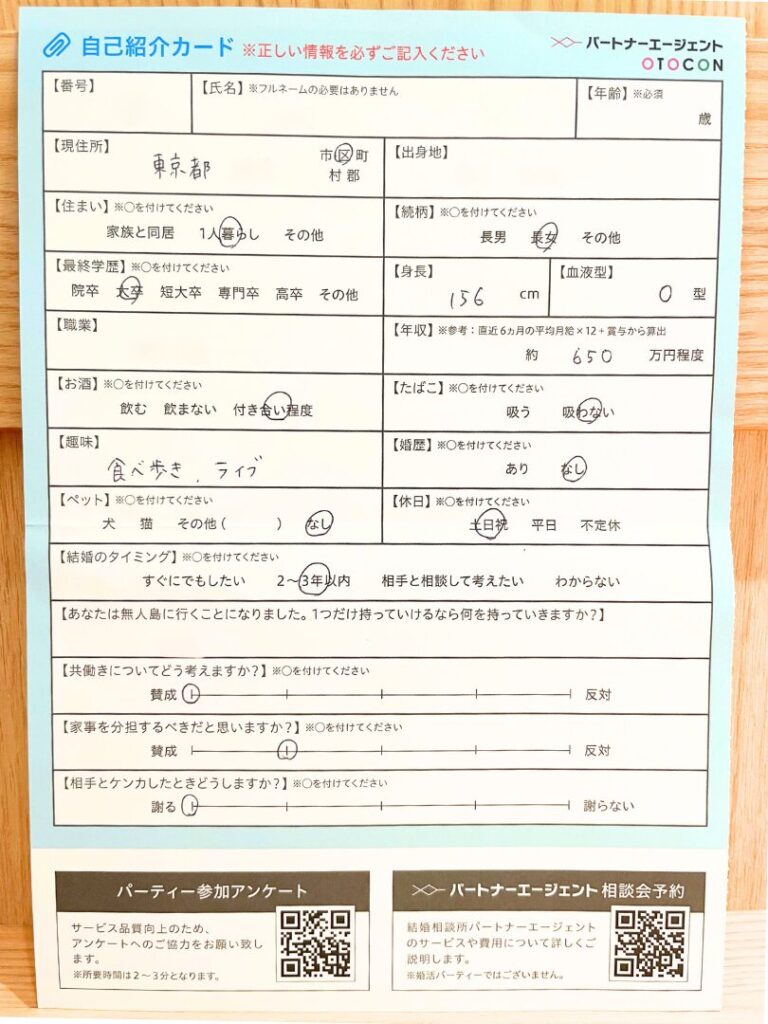 自己紹介カード ※正しい情報を必ずご記入ください
パートナーエージェント
OTOCON
【番号】
【氏名】※フルネームの必要はありません
【年齢】※必須
歳
【現住所】
東京都
市 区 町
村 郡
【出身地】
【住まい】※○を付けてください
家族と同居 1人暮らし その他
【続柄】※○を付けてください
長男 長女 その他
【最終学歴】※○を付けてください
院卒 大卒 短大卒 専門卒 高卒 その他
【身長】
156 cm
【血液型】
O 型
【職業】
【年収】※参考：直近6ヵ月の平均月給×12＋賞与から算出
約 650 万円程度
【お酒】※○を付けてください
飲む 飲まない 付き合い程度
【たばこ】※○を付けてください
吸う 吸わない
【趣味】
食べ歩き、ライブ
【婚歴】※○を付けてください
あり なし
【ペット】※○を付けてください
犬 猫 その他（ ） なし
【休日】※○を付けてください
土日祝 平日 不定休
【結婚のタイミング】※○を付けてください
すぐにでもしたい 2〜3年以内 相手と相談して考えたい わからない
【あなたは無人島に行くことになりました。1つだけ持っていけるなら何を持っていきますか？】
【共働きについてどう考えますか？】※○を付けてください
賛成 反対
【家事を分担するべきだと思いますか？】※○を付けてください
賛成 反対
【相手とケンカしたときどうしますか？】※○を付けてください
謝る 謝らない
パーティー参加アンケート
サービス品質向上のため、
アンケートへのご協力をお願い致し
ます。
※所要時間は2〜3分となります。
パートナーエージェント 相談会予約
結婚相談所パートナーエージェント
のサービスや費用について詳しくご
説明します。
※婚活パーティーではございません。